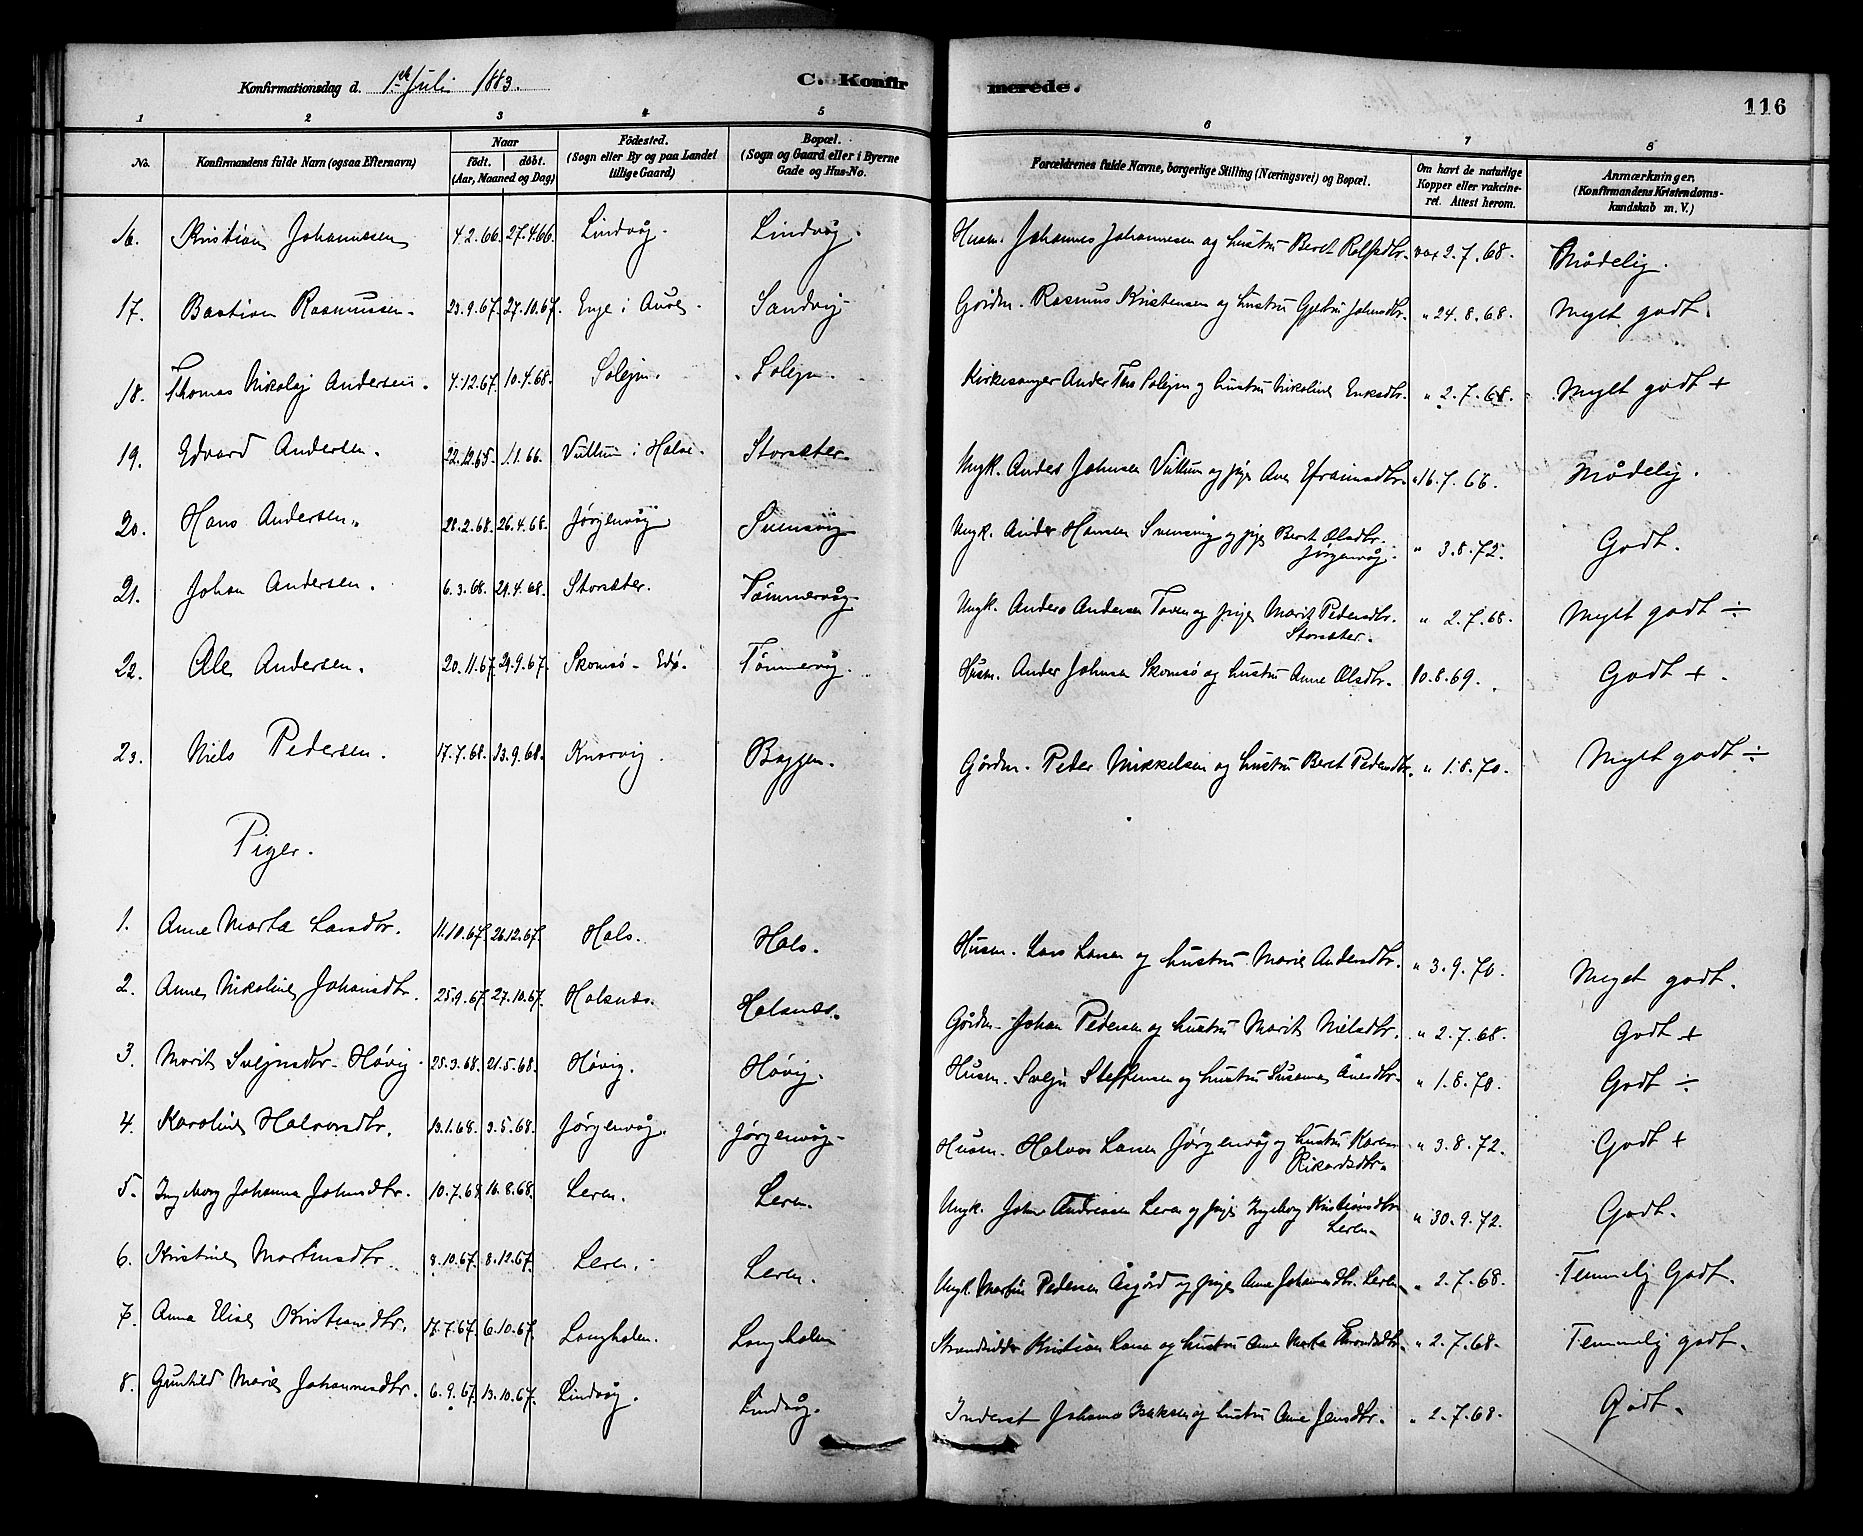 Konfirmationsdag d. 1ste Juli 1883. C. Konfirmerede. 116
1 2 3 4 5 6 7 8
No. Konfirmandens fulde Navn (ogsaa Efternavn) Naar født. døbt. (Aar, Maaned og Dag) Fødested. (Sogn eller By og paa Landet tillige Gaard) Bopæl. (Sogn og Gaard eller i Byerne Gade og Hus-No. Forældrenes fulde Navne, borgerlige Stilling (Næringsvei) og Bopæl. Om havt de naturlige Kopper eller vakcineret. Attest herom. Anmærkninger. (Konfirmandens Kristendomskundskab m. V.)
16. Kristian Johannessen 4.2.66. 27.4.66. Lindvåg. Lindvåg. Husm. Johannes Johannesen og hustru Beret Rolfsdtr. vax 2.7.68. Mådelig.
17. Bastian Rasmussen. 23.9.67. 27.10.67. Enge i Aure. Sandvig Gårdm. Rasmus Kristensen og hustru Gjertru Johnsdtr. " 24.8.68. Myet godt.
18. Thomas Nikolaj Andersen. 4.12.67. 10.4.68. Solejm. Solejm. Kirkesanger Ander Ths Solejm og hustru Nikoline Eriksdtr. " 2.7.68. Myet godt +
19. Edvard Andersen. 22.12.65. 1.1.66. Vullum i Halse. Storsæter. Ungk. Anders Johnsen Vullum og pige Ane Efraimsdtr. " 16.7.66. Mådelig.
20. Hans Andersen. 28.2.68. 26.4.68. Jørgenvåg Svensvig Ungk. Ander Hansen Svensvig og pige Beret Olsdtr. Jørgenvåg. " 3.8.72. Godt.
21. Johan Andersen. 6.3.68. 29.4.68. Storsæter. Tømmervåg Ungk. Anders Andersen Toven og pige Marit Pedersdtr. Storsæter. " 2.7.68. Myet godt ÷
22. Ole Andersen. 20.11.67. 29.9.67. Skomsø - Edø. Tømmervåg. Husm. Ander Johnsen Skomsø og hustru Anne Olsdtr. 10.8.69. Godt +.
23. Niels Pedersen. 17.7.68. 13.9.68. Knarvig. Baggen. Gårdm. Peder Mikkelsen og hustru Beret Pedersdtr. " 1.8.70. Myet godt ÷
Piger.
1. Anne Marta Larsdtr. 11.10.67. 26.12.67. Hals. Hals. Husm. Lars Larsen og hustru Marie Andersdtr. " 3.9.70. Meget godt.
2. Anne Nikoline Johansdtr. 25.9.67. 27.10.67. Halsnæs. Halsnæs. Gårdm. Johan Pedersen og hustru Marit Nielsdtr. " 2.7.68. Godt +
3. Marit Svejnsdtr. Høvig 25.3.68. 21.5.68. Høvig. Høvig. Husm. Svejn Steffensen og hustru Susanna Åresdtr. " 1.8.70. Godt ÷
4. Karoline Halvorsdtr. 13.1.68. 3.5.68. Jørgenvåg. Jørgenvåg. Husm. Halvor Larsen Jørgenvåg og hustru Karen Rikardsdtr. " 3.8.72. Godt +
5. Ingeborg Johanna Johnsdtr. 10.7.68. 16.8.68. Leren. Leren. Ungk. John Andreassen Leren og pige Ingeborg Kristiansdtr Leren. " 30.9.72. Godt.
6. Kristine Martinsdtr. 8.10.67. 8.12.67. Leren. Leren. Ungk. Martin Pedersen Åsgård og pige Ane Johannesdtr. Leren " 2.7.68. Temmelig Godt.
7. Anna Elise Kristiansdtr. 17.7.67. 6.10.67. Langholen. Langholen Strandsidder Kristian Larsen og hustru Ane Marta Thronsdtr. " 2.7.68. Temmelig godt.
8. Gunhild Marie Johannesdtr. 6.9.67. 13.10.67. Lindvåg. Lindvåg. Inderst Johannes Isaksen og hustru Ane Jensdtr. " 2.7.68. Godt.